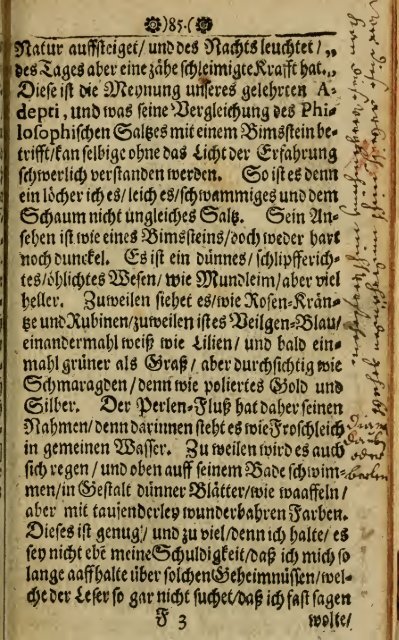 )85.(
Natur auffsteiget/ und des Nachts leuchtet/ „
des Tages aber eine zähe schleimigte Krafft hat. „
Diese ist die Meynung unseres gelehrten A-
depti, und was seine Vergleichung des Phi-
losophischen Saltzes mit einem Bimsstein be-
trifft/ kan selbige ohne das Licht der Erfahrung
schwerlich verstanden werden. So ist es denn
ein löcherich es/ leich es/ schwammiges und dem
Schaum nicht ungleiches Saltz. Sein An-
sehen ist wie eines Bimssteins/ doch weder hart
noch dunckel. Es ist ein dünnes/ schlipfferich-
tes/ öhlichtes Wesen/ wie Mundleim/ aber viel
heller. Zuweilen siehet es/ wie Rosen-Krän-
tze und Rubinen/ zuweilen ist es Veilgen-Blau/
einandermahl weiß wie Lilien/ und bald ein-
mahl grüner als Graß/ aber durchsichtig wie
Schmaragden/ denn wie poliertes Gold und
Silber. Der Perlen-Fluß hat daher seinen
Nahmen/ denn darinnen steht es wie Froschleich
in gemeinen Wasser. Zu weilen wird es auch
sich regen/ und oben auff seinem Bade schwim-
men/ in Gestalt dünner Blätter/ wie waaffeln/
aber mit tausenderley wunderbahren Farben.
Dieses ist genug/ und zu viel/ denn ich halte/ es
sey nicht ebē meine Schuldigkeit/ daß ich mich so
lange aaffhalte über solchen Geheimnüssen/ wel-
che der Leser so gar nicht suchet/ daß ich fast sagen
F 3 wolte/